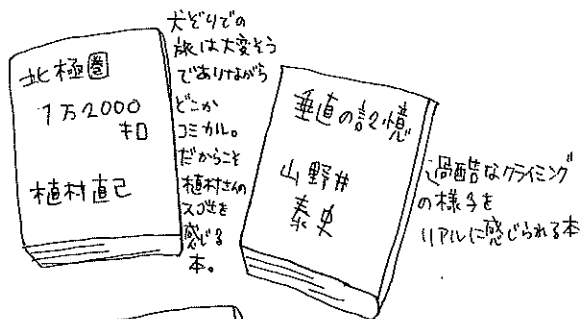 北極圏
1万2000
キロ
植村直己
犬ぞりでの
旅は大変そう
でありながら
どこか
コミカル。
だからこそ
植村さんの
スゴさを
感じる
本。
垂直の記憶
山野井
泰史
過酷なクライミング
の様子を
リアルに感じられる本